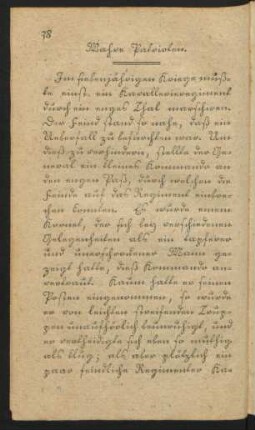 78
Wahre Patrioten.
Im siebenjährigen Kriege muß-
te einst, ein Kavallerieregiment
durch ein enges Thal marschiren.
Der Feind stand so nahe, daß ein
Ueberfall zu befürchten war. Um
dieß zu verhindern, stellte der Ge-
neral ein kleines Kommando an
den engen Paß, durch welchen die
Feinde auf das Regiment einbre-
chen konnten. Es wurde einem
Kornet, der sich bey verschiedenen
Gelegenheiten als ein tapferer
und unerschrockener Mann ge-
zeigt hatte, dieß Kommando an-
vertraut. Kaum hatte er seinen
Posten eingenommen, so wurde
er von leichten streifenden Trup-
pen unaufhörlich beunruhigt, und
er vertheidigte sich eben so muthig
als klug; als aber plötzlich ein
paar feindliche Regimenter Ka-